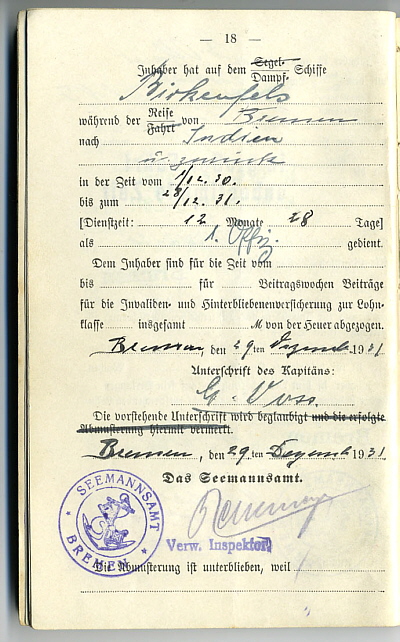 — 18 —
Inhaber hat auf dem Segel- Dampf- Schiffe
Birkenfels
während der Reise Fahrt von Bremen
nach Indien
u. zurück
in der Zeit vom 1/12. 30.
bis zum 28/12. 31.
[Dienstzeit: 12 Monate 28 Tage]
als 1. Offiz. gedient.
Dem Inhaber sind für die Zeit vom
bis für Beitragswochen Beiträge
für die Invaliden- und Hinterbliebenenversicherung zur Lohn-
klasse insgesamt M von der Heuer abgezogen.
Bremen, den 29ten Dezemb. 1931
Unterschrift des Kapitäns:
Voss.
Die vorstehende Unterschrift wird beglaubigt und die erfolgte
Abmusterung hiermit vermerkt.
Bremen, den 29.ten Dezemb 1931
Das Seemannsamt.
SEEMANNSAMT
BREMEN
Verw. Inspektor
Die Abmusterung ist unterblieben, weil